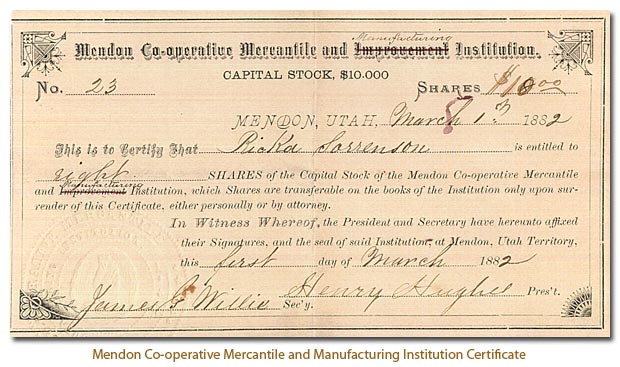 Manufacturing
Mendon Co-operative Mercantile and Improvement Institution.
CAPITAL STOCK, $10.000
No. 23 SHARES $10.00
8
MENDON, UTAH, March 1st 1882
This is to Certify That Ricka Sorrenson is entitled to
eight SHARES of the Capital Stock of the Mendon Co-operative Mercantile
Manufacturing
and Improvement Institution, which Shares are transferable on the books of the Institution only upon sur-
render of this Certificate, either personally or by attorney.
In Witness Whereof, the President and Secretary have hereunto affixed
their Signatures, and the seal of said Institution, at Mendon, Utah Territory,
this first day of March 1882
James G. Willie Sec'y. Henry Hughes Pres't.
Mendon Co-operative Mercantile and Manufacturing Institution Certificate